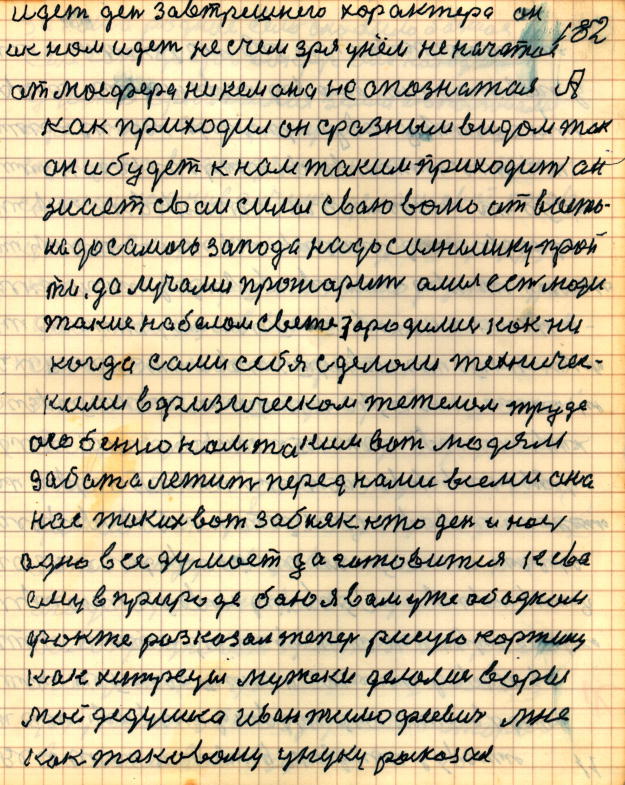 идет ден завтрешнего характера он
182
ик ном идет не счем зря унём не начатая
атмосфера никем она не опознатая А
как приходил он сразным видом так
он и будет к нам таким приходит он
знает сваи силы сваю волю от васто-
ка до самого запода надо солнышку прой
ти. да лучами прожарит
люди
такие на белом свете зародилис как ни
когда сами себя сделоли техничес-
кими в физическом тежелом труде
особенно нам таким вот людям
забота летит перед нами всеми она
нас таких вот
кто ден и ноч
одно все думает да готовится к сва
ему в природе баю я вам уже об адном
факте разказал тепер рисую картину
как хитрецы мужеки делалис воры
мой дедушка иван тимофеевич мне
как таковому унуку расказал